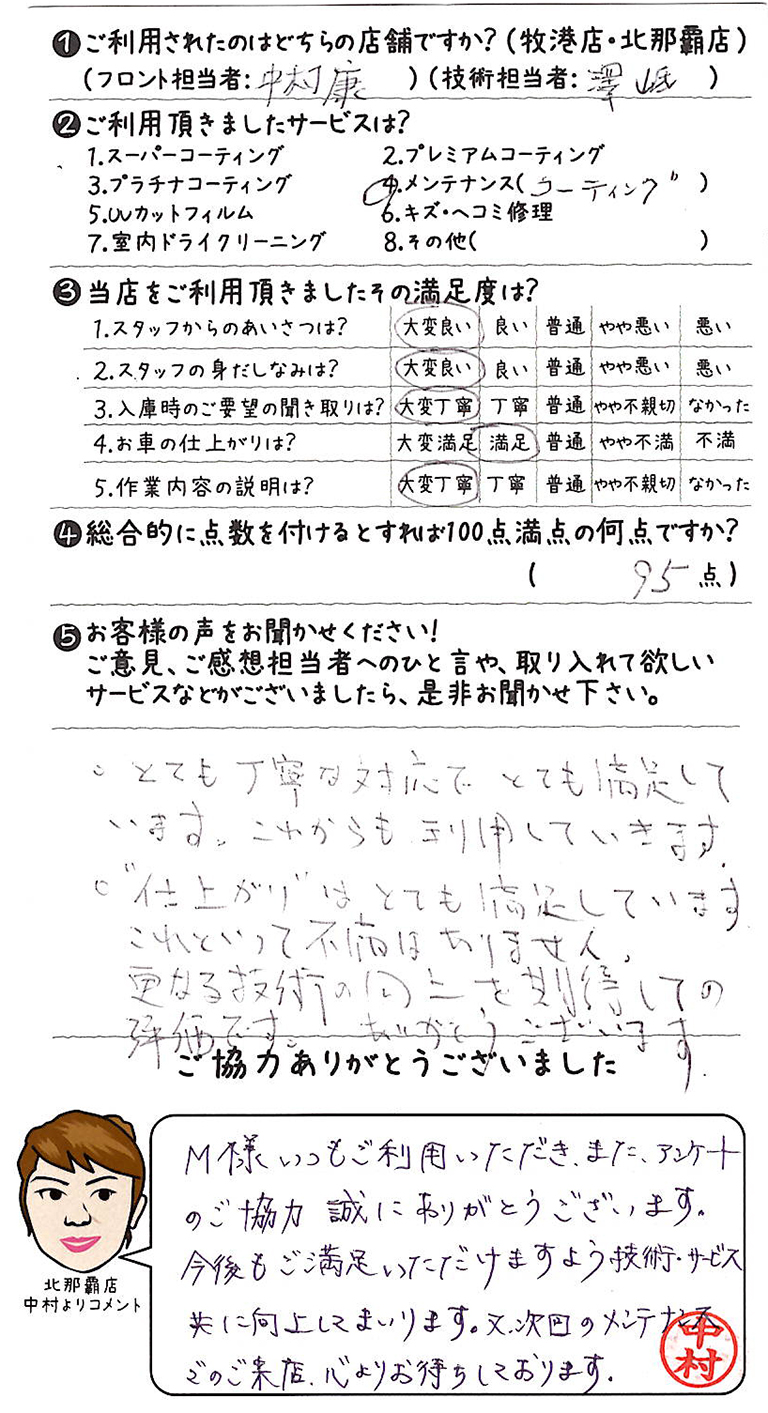 ❶ご利用されたのはどちらの店舗ですか?(牧港店・北那覇店)
(フロント担当者:中村康)(技術担当者:澤岻)
❷ご利用頂きましたサービスは?
1.スーパーコーティング 2.プレミアムコーティング
3.プラチナコーティング 4.メンテナンス(コーティング〃)
5.UVカットフィルム 6.キズ・ヘコミ修理
7.室内ドライクリーニング 8.その他( )
❸当店をご利用頂きましたその満足度は?
1.スタッフからのあいさつは? 大変良い 良い 普通 やや悪い 悪い
2.スタッフの身だしなみは? 大変良い 良い 普通 やや悪い 悪い
3.入庫時のご要望の聞き取りは? 大変丁寧 丁寧 普通 やや不親切 なかった
4.お車の仕上がりは? 大変満足 満足 普通 やや不満 不満
5.作業内容の説明は? 大変丁寧 丁寧 普通 やや不親切 なかった
❹総合的に点数を付けるとすれば100点満点の何点ですか?
(95点)
❺お客様の声をお聞かせください!
ご意見、ご感想担当者へのひと言や、取り入れて欲しい
サービスなどがございましたら、是非お聞かせ下さい。
○とても丁寧な対応で とても満足して
います。これからも利用していきます。
○"仕上がり"はとても満足しています
これといって不満はありません。
更なる技術の向上を期待しての
評価です。 ありがとうございます。
ご協力ありがとうございました
M様いつもご利用いただき、また、アンケート
のご協力 誠にありがとうございます。
今後もご満足いただけますよう技術・サービス
共に向上してまいります。又、次回のメンテナンス
でのご来店、心よりお待ちしております。
中村
北那覇店
中村よりコメント